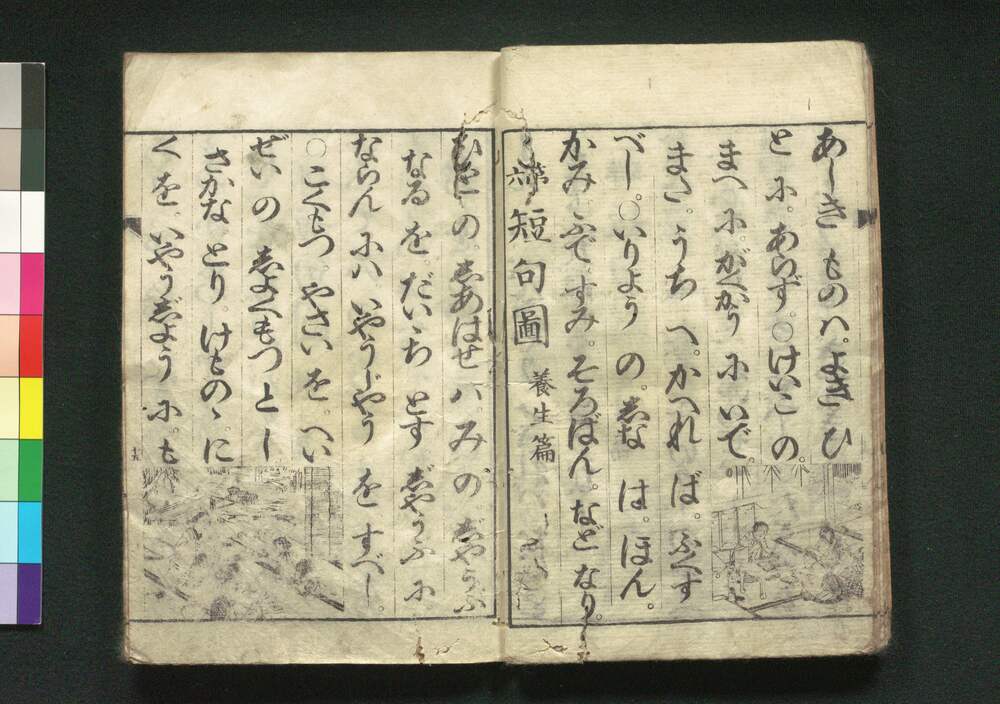 あしき ものハ。よき ひ
と に。あらず。〇けいこ の。
まへ に。がくかう に いで。
また。うち へ。かへれ ば。ふくす
べし。〇いりよう の。しな は。ほん。
かみ。ふで。すみ。そろばん。など なり。
第六 短句圖 養生篇
ひとの。しあはせ ハ。みの。じやうぶ
なる を。だいいち とす じやうぶ に
ならん にハ。いやうじやう を すべし。
〇こくもつ。やさい を。へい
ぜい の しよくもつ と し
さかな。とり。けものゝ。に
く を。いやうじよう に。も